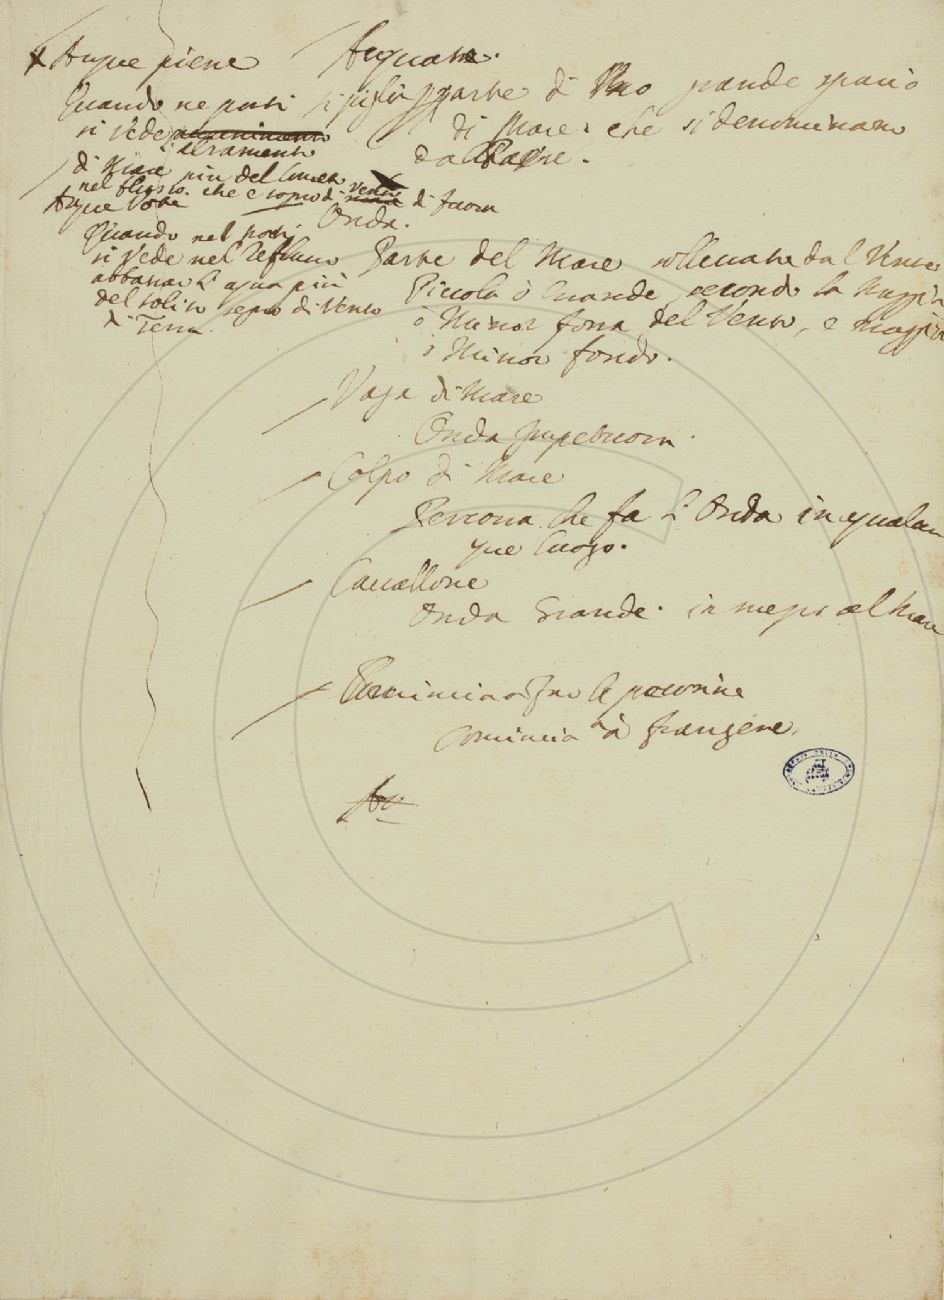 Aque piene
Quando ne porti
si vede
l'alzamento
di Mare più del
nel flusso. che è segno di di fuora
Aque
Quando nel porti
si vede nel Reflusso
abbassar l'aqua più
del solito segno di Vento
di Terra
Aquate.
si piglia parte di Uno grande spacio
di Mare. che si denominano
dal Paese.
Onda.
Parte del Mare sollevata dal Vento
Piccola ò Grande, secondo la Maggior
ò Minor forza del Vento, e maggior
ò Minor fondo.
Vaga di Mare
Onda
Colpo di Mare
Percossa che fa l'Onda in qualun
que luogo.
Cavallone
Onda Grande. in mezo al Mare
le
Comincia à frangere.